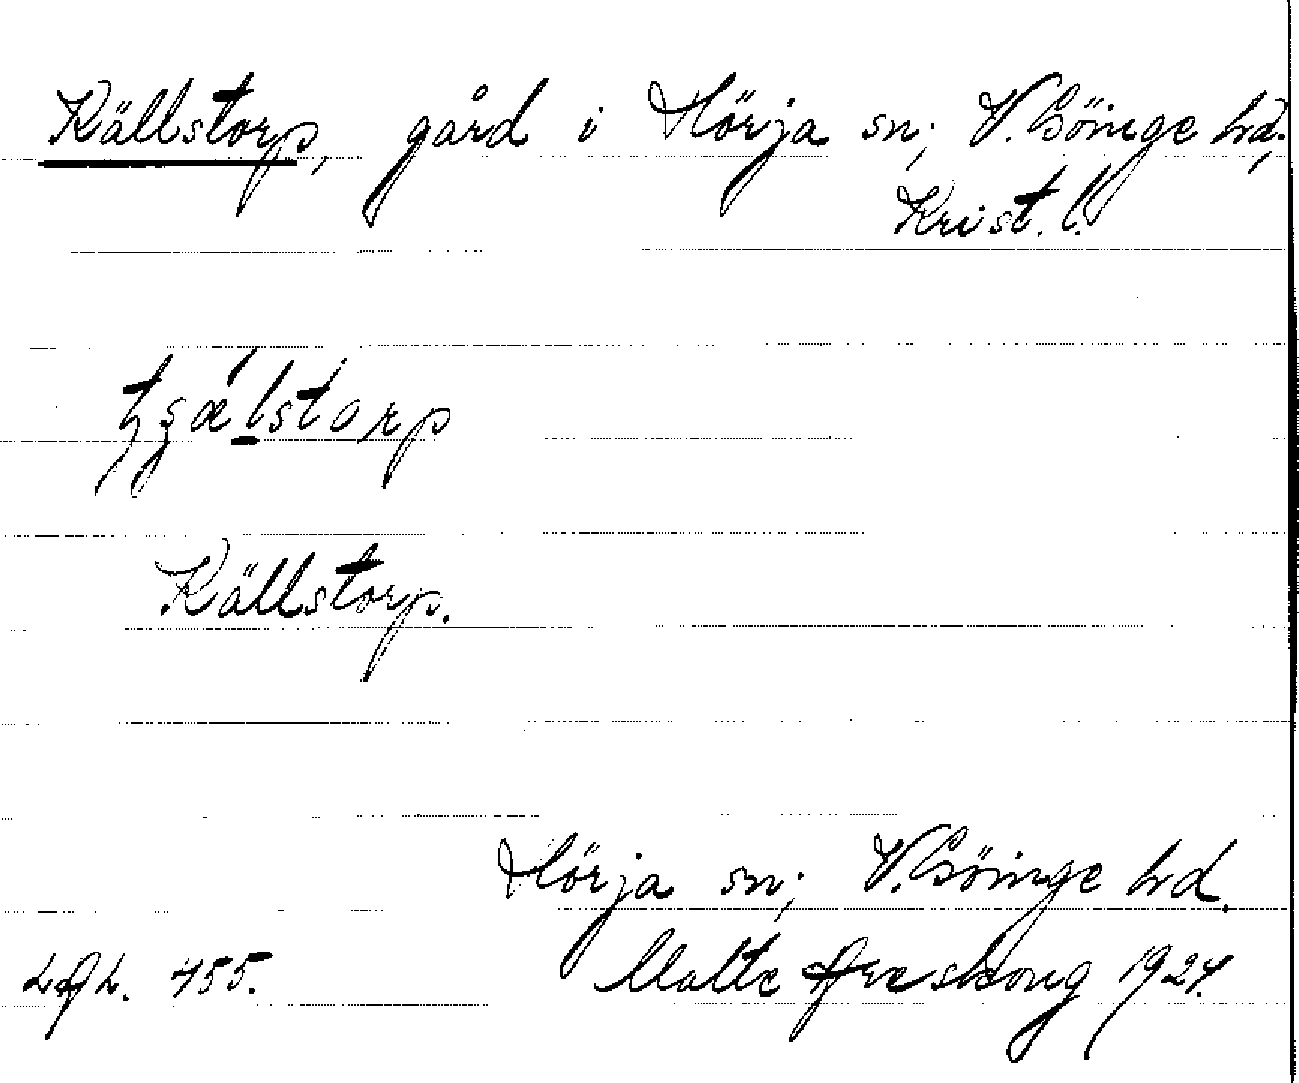 Källstorp, gård i Hörja sn; V. Göinge hd;
Krist. l.
Källstorp.
Hörja sn; V. Göinge hd.
Malte Areskoug 1924.